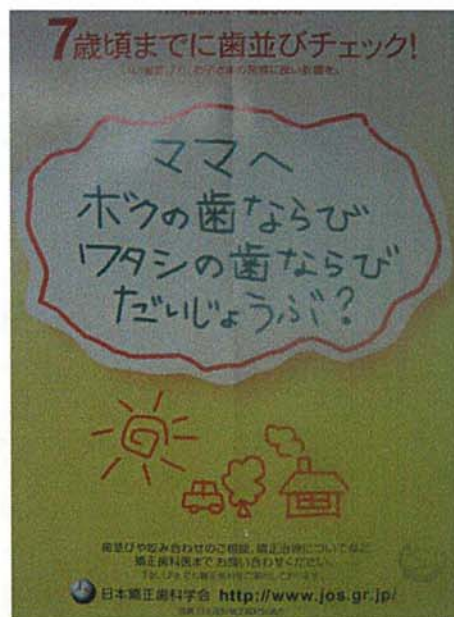 7歳頃までに歯並びチェック!
ママへ
ボクの歯ならび
ワタシの歯ならび
だいじょうぶ?
歯並びや咬み合わせのご相談、矯正治療についてなど
矯正歯科医まで お問い合わせください。
日本矯正歯科学会 http://www.jos.gr.jp/